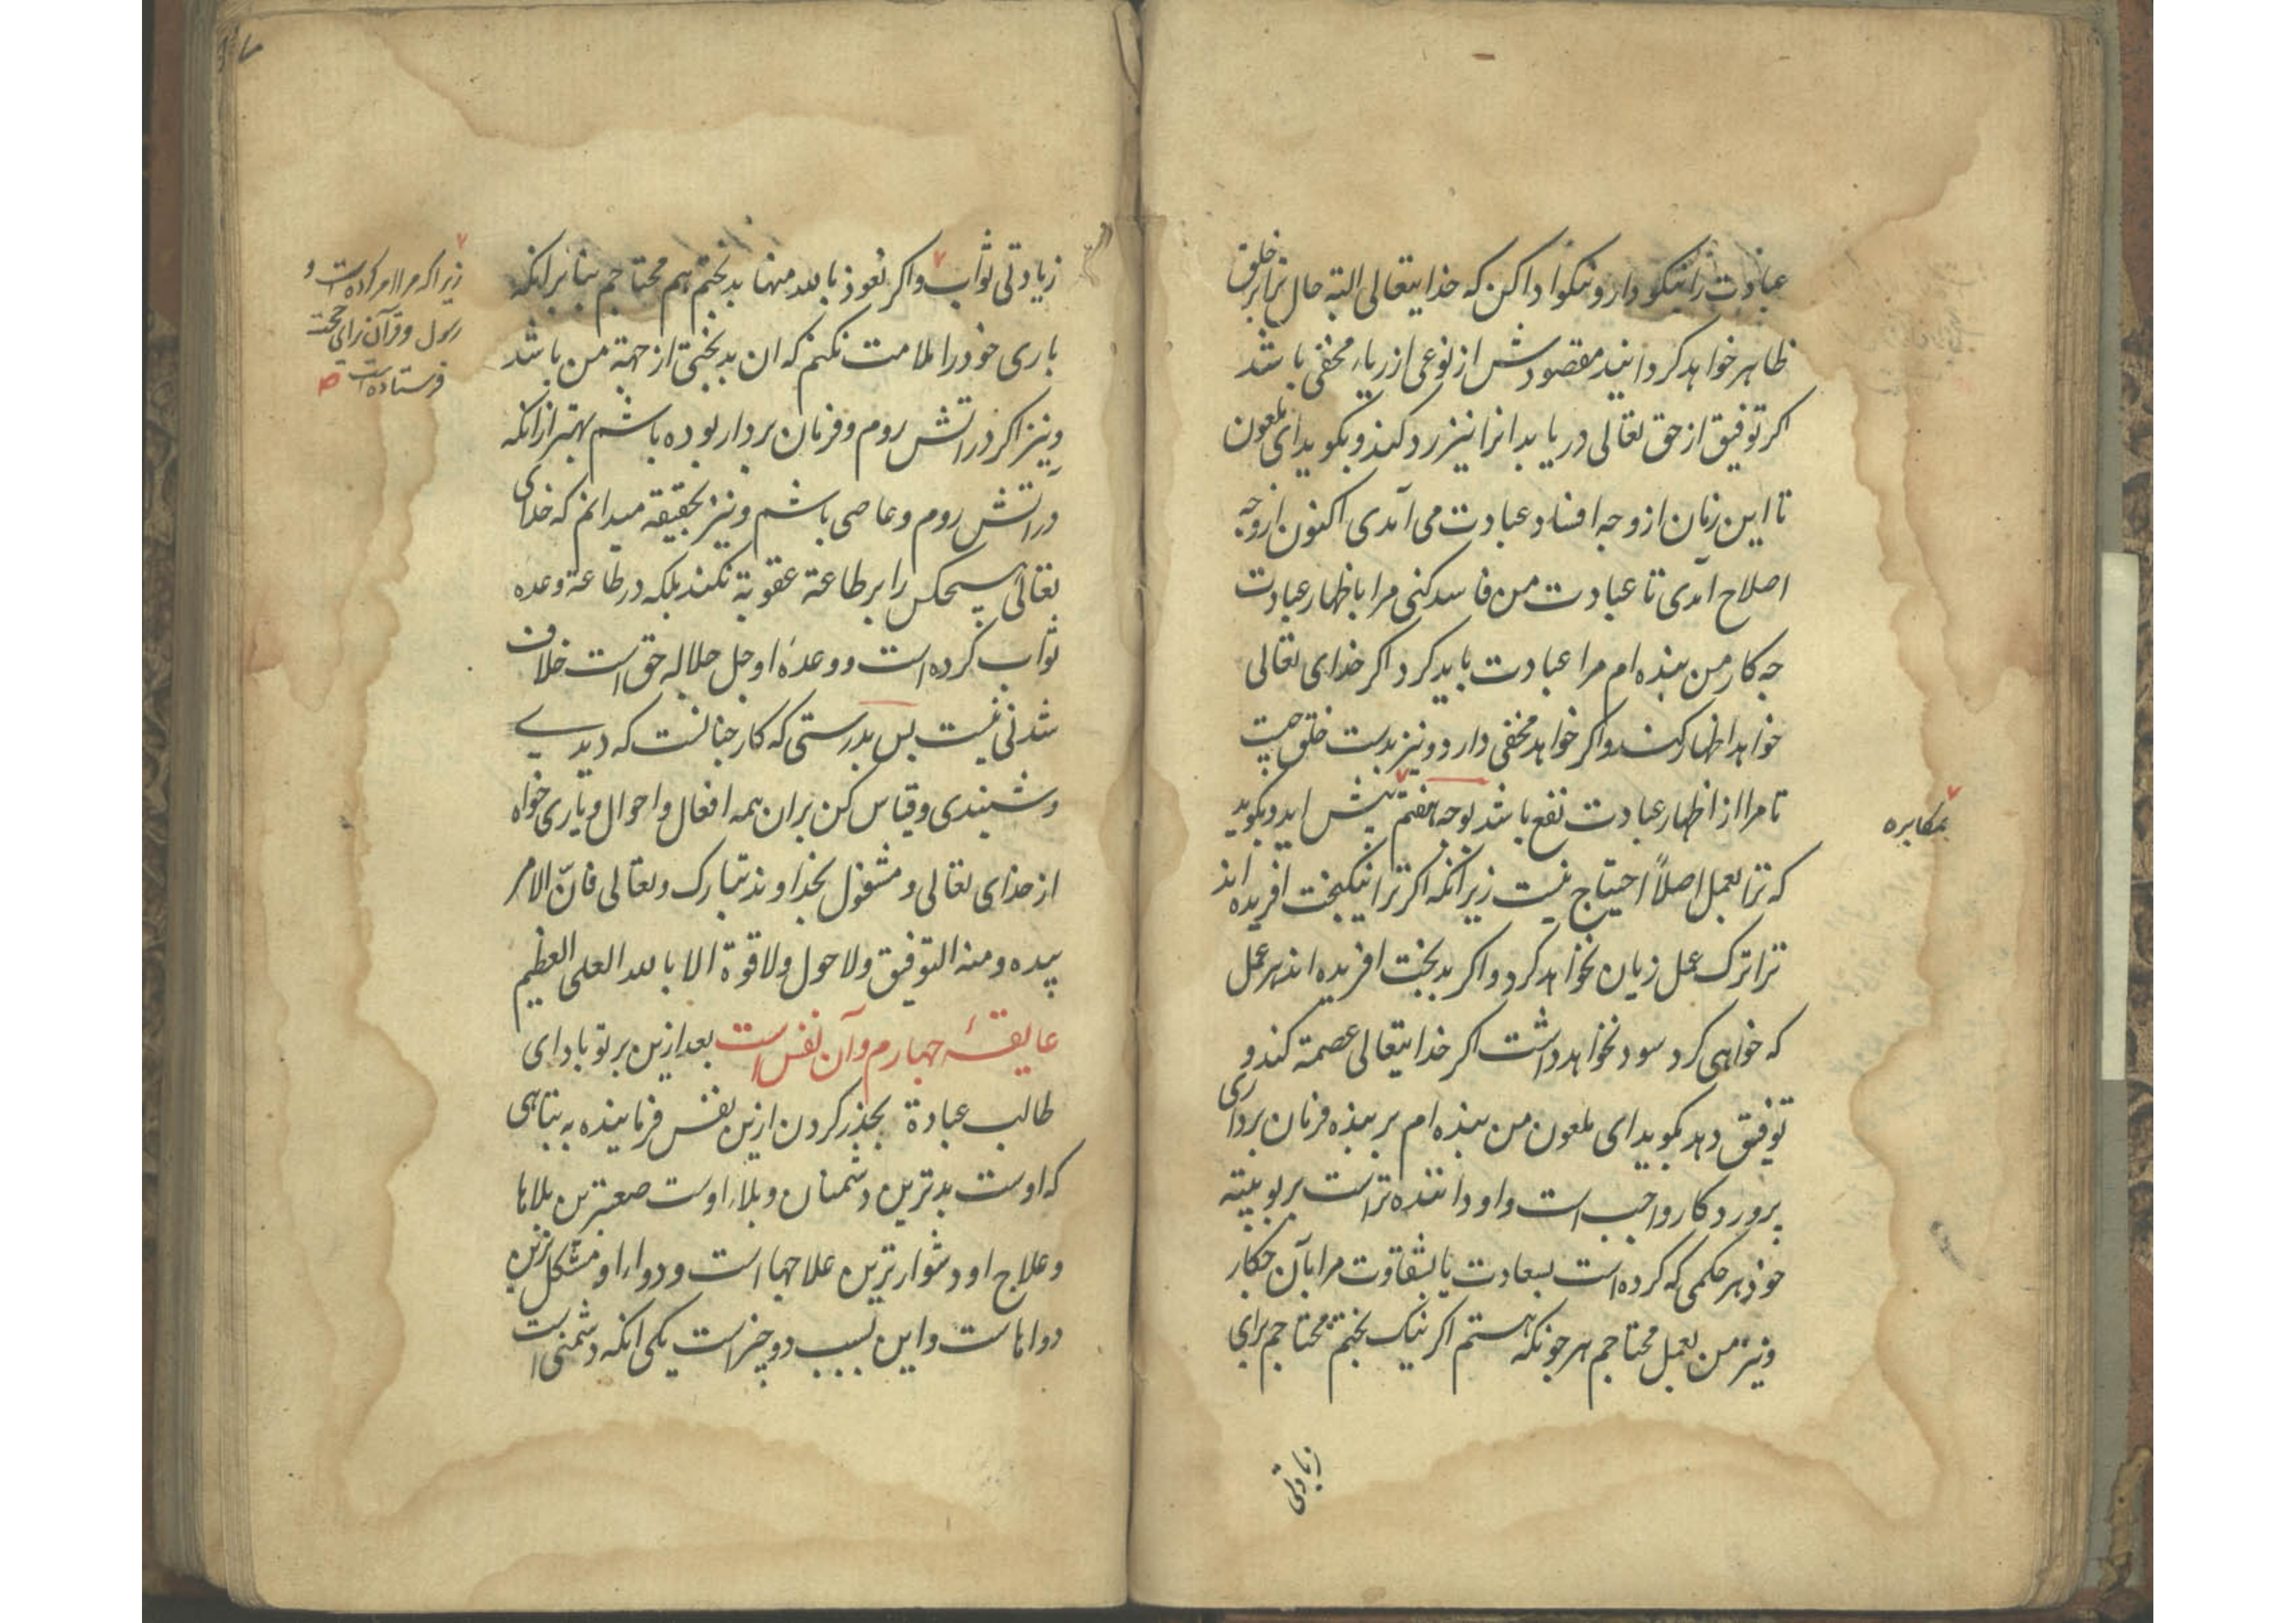 عبادت را نیکو دار و نیکو ادا کن که خدایتعالی البته حال ترا بر خلق
ظاهر خواهد کردانید مقصودش از نوعی از ریاء مخفی باشد
اکر توفیق از حق تعالی دریابد انرا نیز رد کند و بکوید ای ملعون
تا این زمان از وجه افساد عبادت می آمدی اکنون از وجه
اصلاح آمدی تا عبادت من فاسد کنی مرا باظهار عبادت
چه کار من بنده ام مرا عبادت باید کرد اکر خدای تعالی
خواهد اظهار کند و اکر خواهد مخفی دارد و نیز بدست خلق چیست
تا مرا از اظهار عبادت نفع باشد بوجه هفتم پیش اید و بکوید
بمکابره
که ترا بعمل اصلاً احتیاج نیست زیرانکه اکر ترا نیکبخت افریده اند
ترا ترک عمل زیان نخواهد کرد و اکر بدبخت افریده اند هر عمل
که خواهی کرد سود نخواهد داشت اکر خدایتعالی عصمة کند و
توفیق دهد بکوید ای ملعون من بنده ام بر بنده فرمان برداری
پروردکار واجب است و او داننده تراست بربوبیته
خود هر حکمی که کرده است بسعادت یا بشقاوت مرا بآن چکار
و نیز من بعمل محتاجم هر چونکه هستم اکر نیک بختم محتاجم برای
زیادتی
زیادتی ثواب و اکر نعوذ بالله منها بدبختم هم محتاجم بنا برانکه
زیرا که مرا امر کرده است و
رسول و قرآن برای حجت
فرستاده است
باری خود را ملامت نکنم که ان بدبختی از جهة من باشد
و نیز اکر در اتش روم و فرمان بردار بوده باشم بهتر از انکه
در اتش روم و عاصی باشم و نیز بحقیقة میدانم که خدای
تعالی هیچکس را بر طاعة عقوبة نکند بلکه در طاعة وعده
ثواب کرده است و وعدهٔ او جل جلاله حق است خلاف
شدنی نیست پس بدرستی که کار چنانست که دیدی
و شنیدی و قیاس کن بران همه افعال و احوال و یاری خواه
از خدای تعالی و مشغول بخداوند تبارک و تعالی فانّ الامر
بیده و منه التوفیق ولا حول ولا قوة الا بالله العلی العظیم
عایقهٔ چهارم و آن نفس است بعد ازین بر تو باد ای
طالب عبادة بحذر کردن ازین نفس فرماینده به تباهی
که اوست بدترین دشمنان و بلاء اوست صعبترین بلاها
و علاج او دشوارترین علاجها است و دواء او مشکل ترین
دواهاست و این بسبب دو چیز است یکی انکه دشمنی است